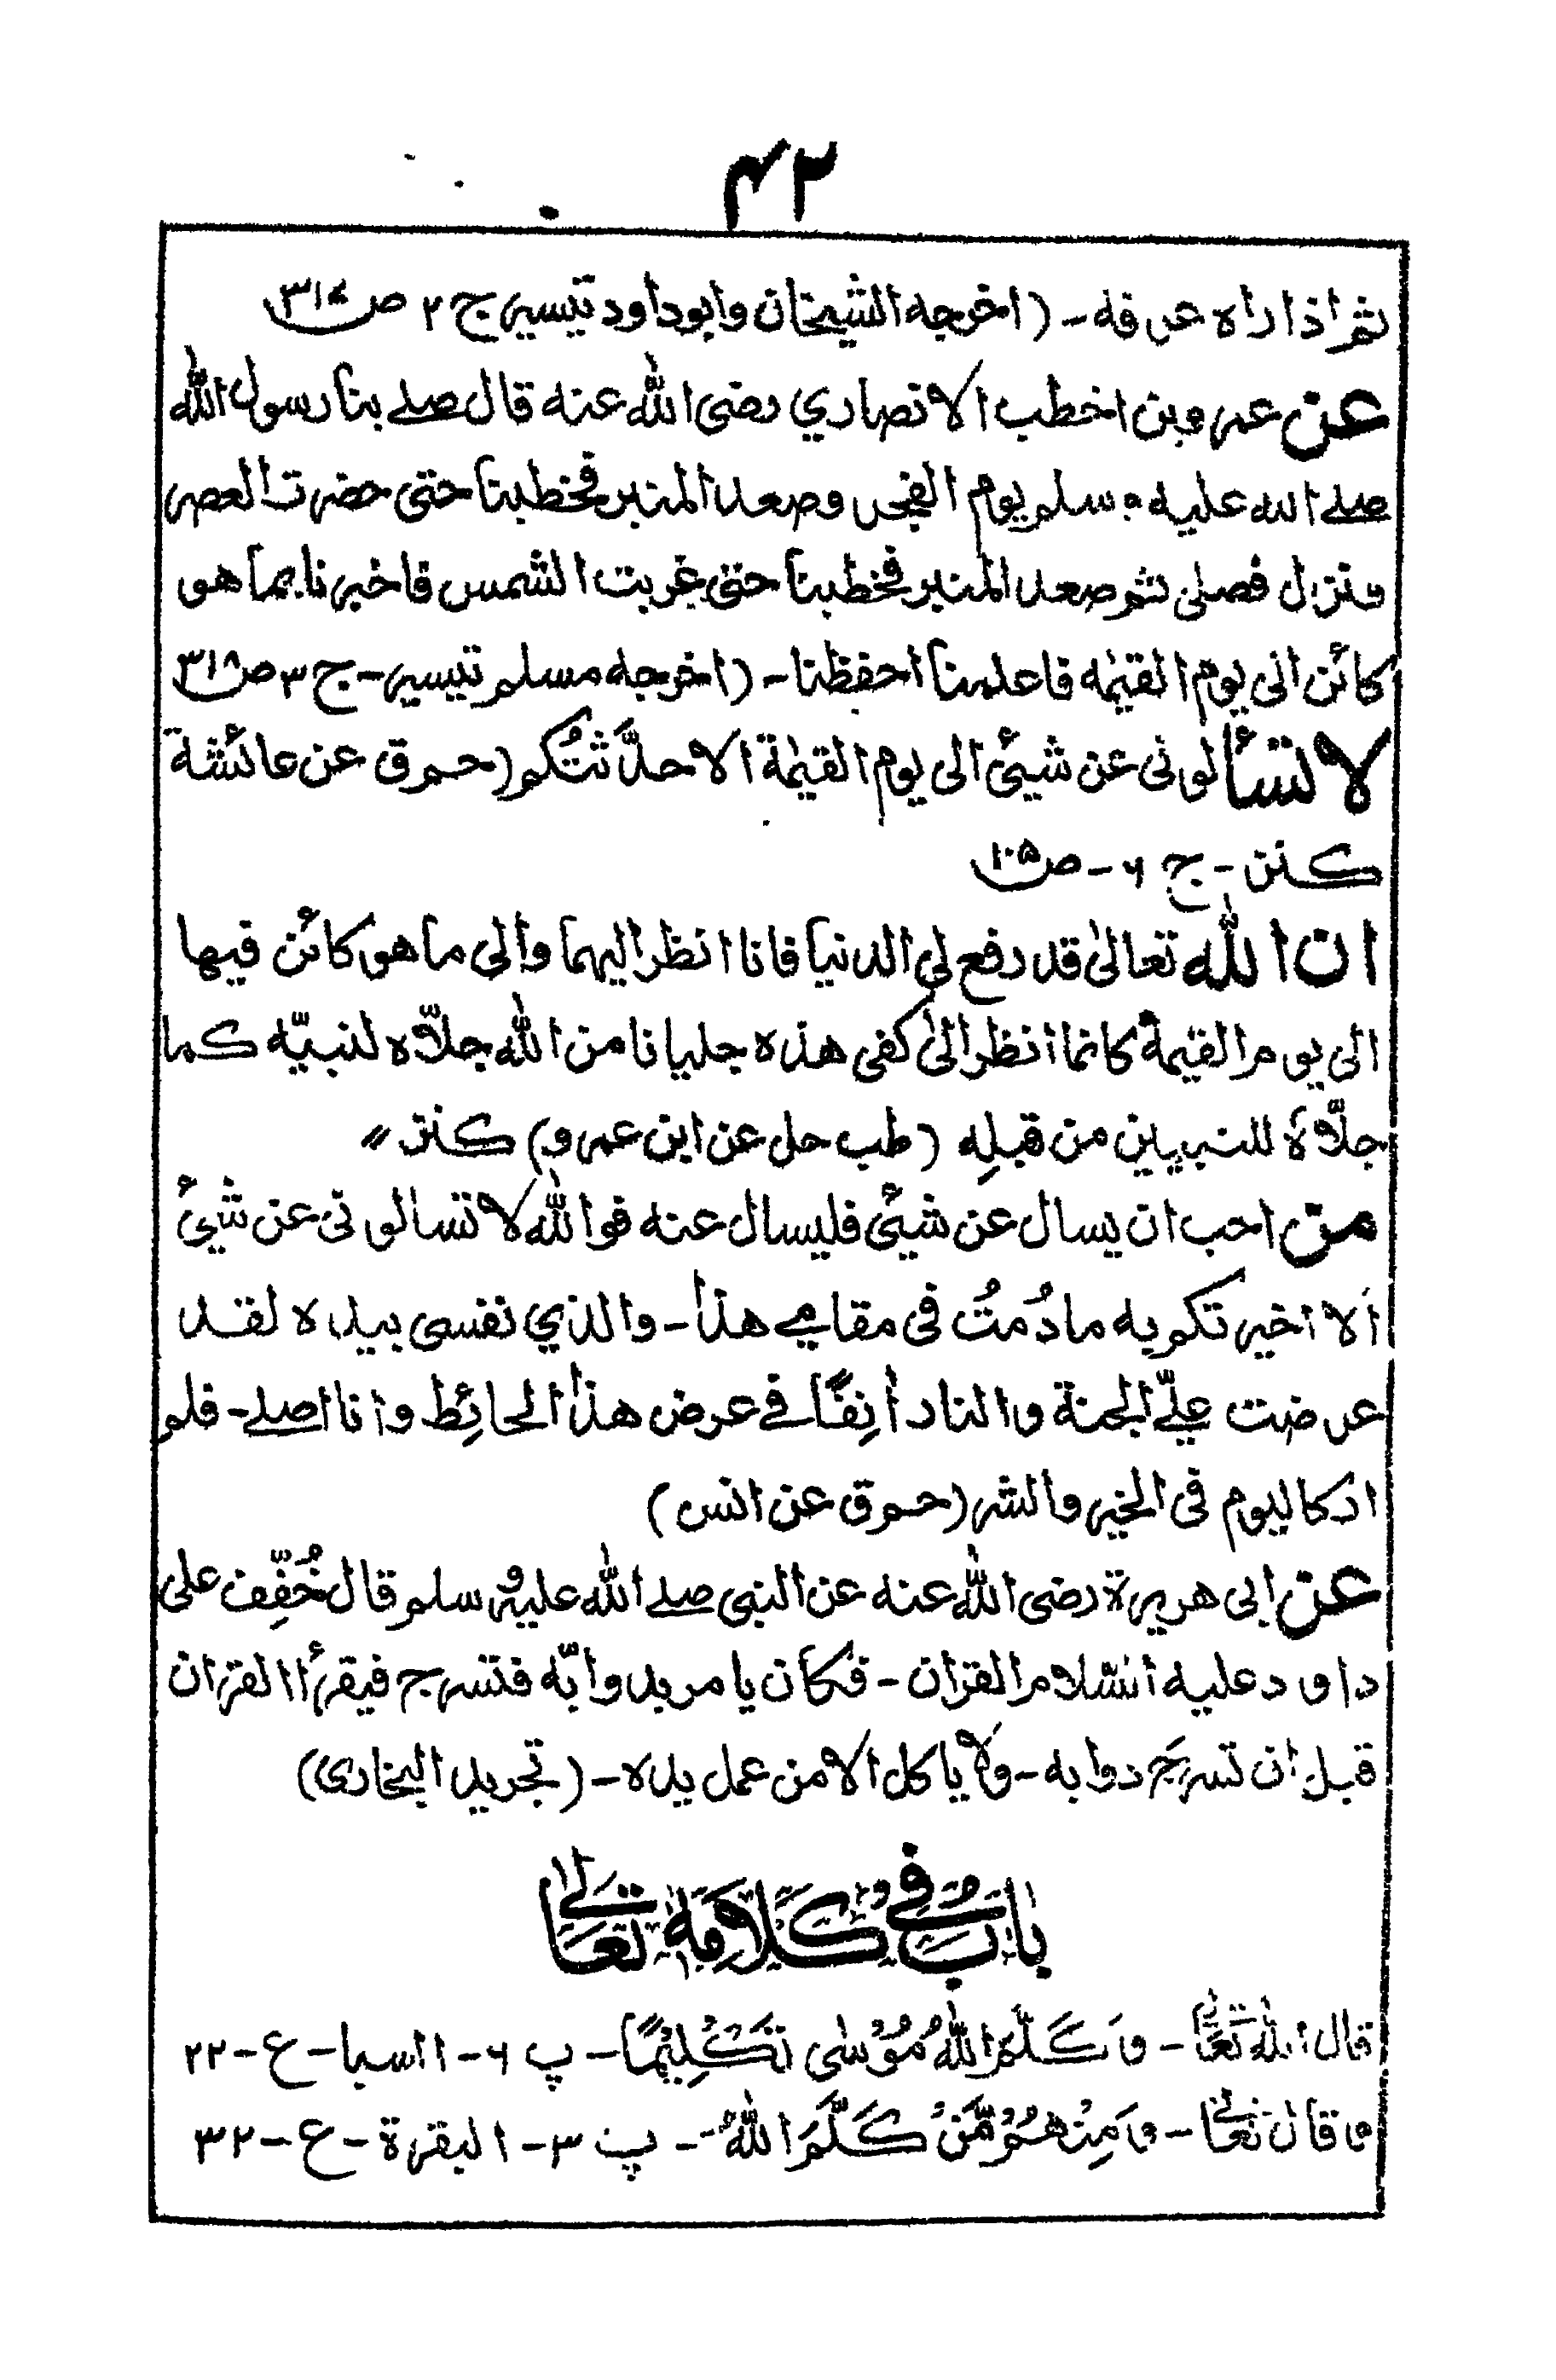 ۴۲
ثم اذا راه عرفه - (اخرجه الشيخان وابوداود تيسير ج ۲ ص۳۱۷
عن عمرو بن اخطب الانصاري رضى الله عنه قال صلے بنا رسول الله
صلے الله عليه وسلم يوم الفجر وصعد المنبر فخطبنا حتى حضرت العصر
ونزل فصلى ثم صعد المنبر فخطبنا حتى غربت الشمس فاخبرنا بما هو
كائن الى يوم القيٰمه فاعلمنا احفظنا - (اخرجه مسلم تيسير - ج ۳ ص۳۱۸
لا تسألونى عن شيئ الى يوم القيٰمة الا حدَّثتُكم (حم ق عن عائشة
كنز - ج ۶ - ص۱۰۵
ان الله تعالىٰ قد رفع لى الدنيا فانا انظر اليهما والى ما هو كائن فيها
الى يوم القيمة كانما انظر الىٰ كفى هذه جليانا من الله جلّاه لنبيّه كما
جلّاهُ للنبيين من قبلِه (طب حل عن ابن عمرو) كنز "
من احب ان يسال عن شيئ فليسال عنه فوالله لا تسالونى عن شيئ
اَلا اخبرتكم به ما دُمتُ فى مقامے هذا - والذي نفسى بيده لقد
عرضت علےّ الجنة والنار اٰنِفًا فے عرض هذا الحائِط وانا اصلے - فلم
ار كاليوم فى الخير والشر (حم ق عن انس)
عن ابى هريرة رضى الله عنه عن النبى صلے الله عليه وسلم قال خُفِّف على
داود عليه السّلام القران - فكان يامر بدوابّه فتسرج فيقرأ القران
قبل ان تسرج دوابه - ولا ياكل الا من عمل يده - (تجريد البخارى)
بابٌ فى كلامه تعالىٰ
قال الله تعالىٰ - وَكَلَّمَ اللهُ مُوْسٰى تَكْلِيْمًا - پ ۶ - النسا - ع - ۲۲
وقال تعالىٰ - وَمِنْهُمْ مَّنْ كَلَّمَ اللهُ - پ ۳ - البقرة - ع - ۳۲